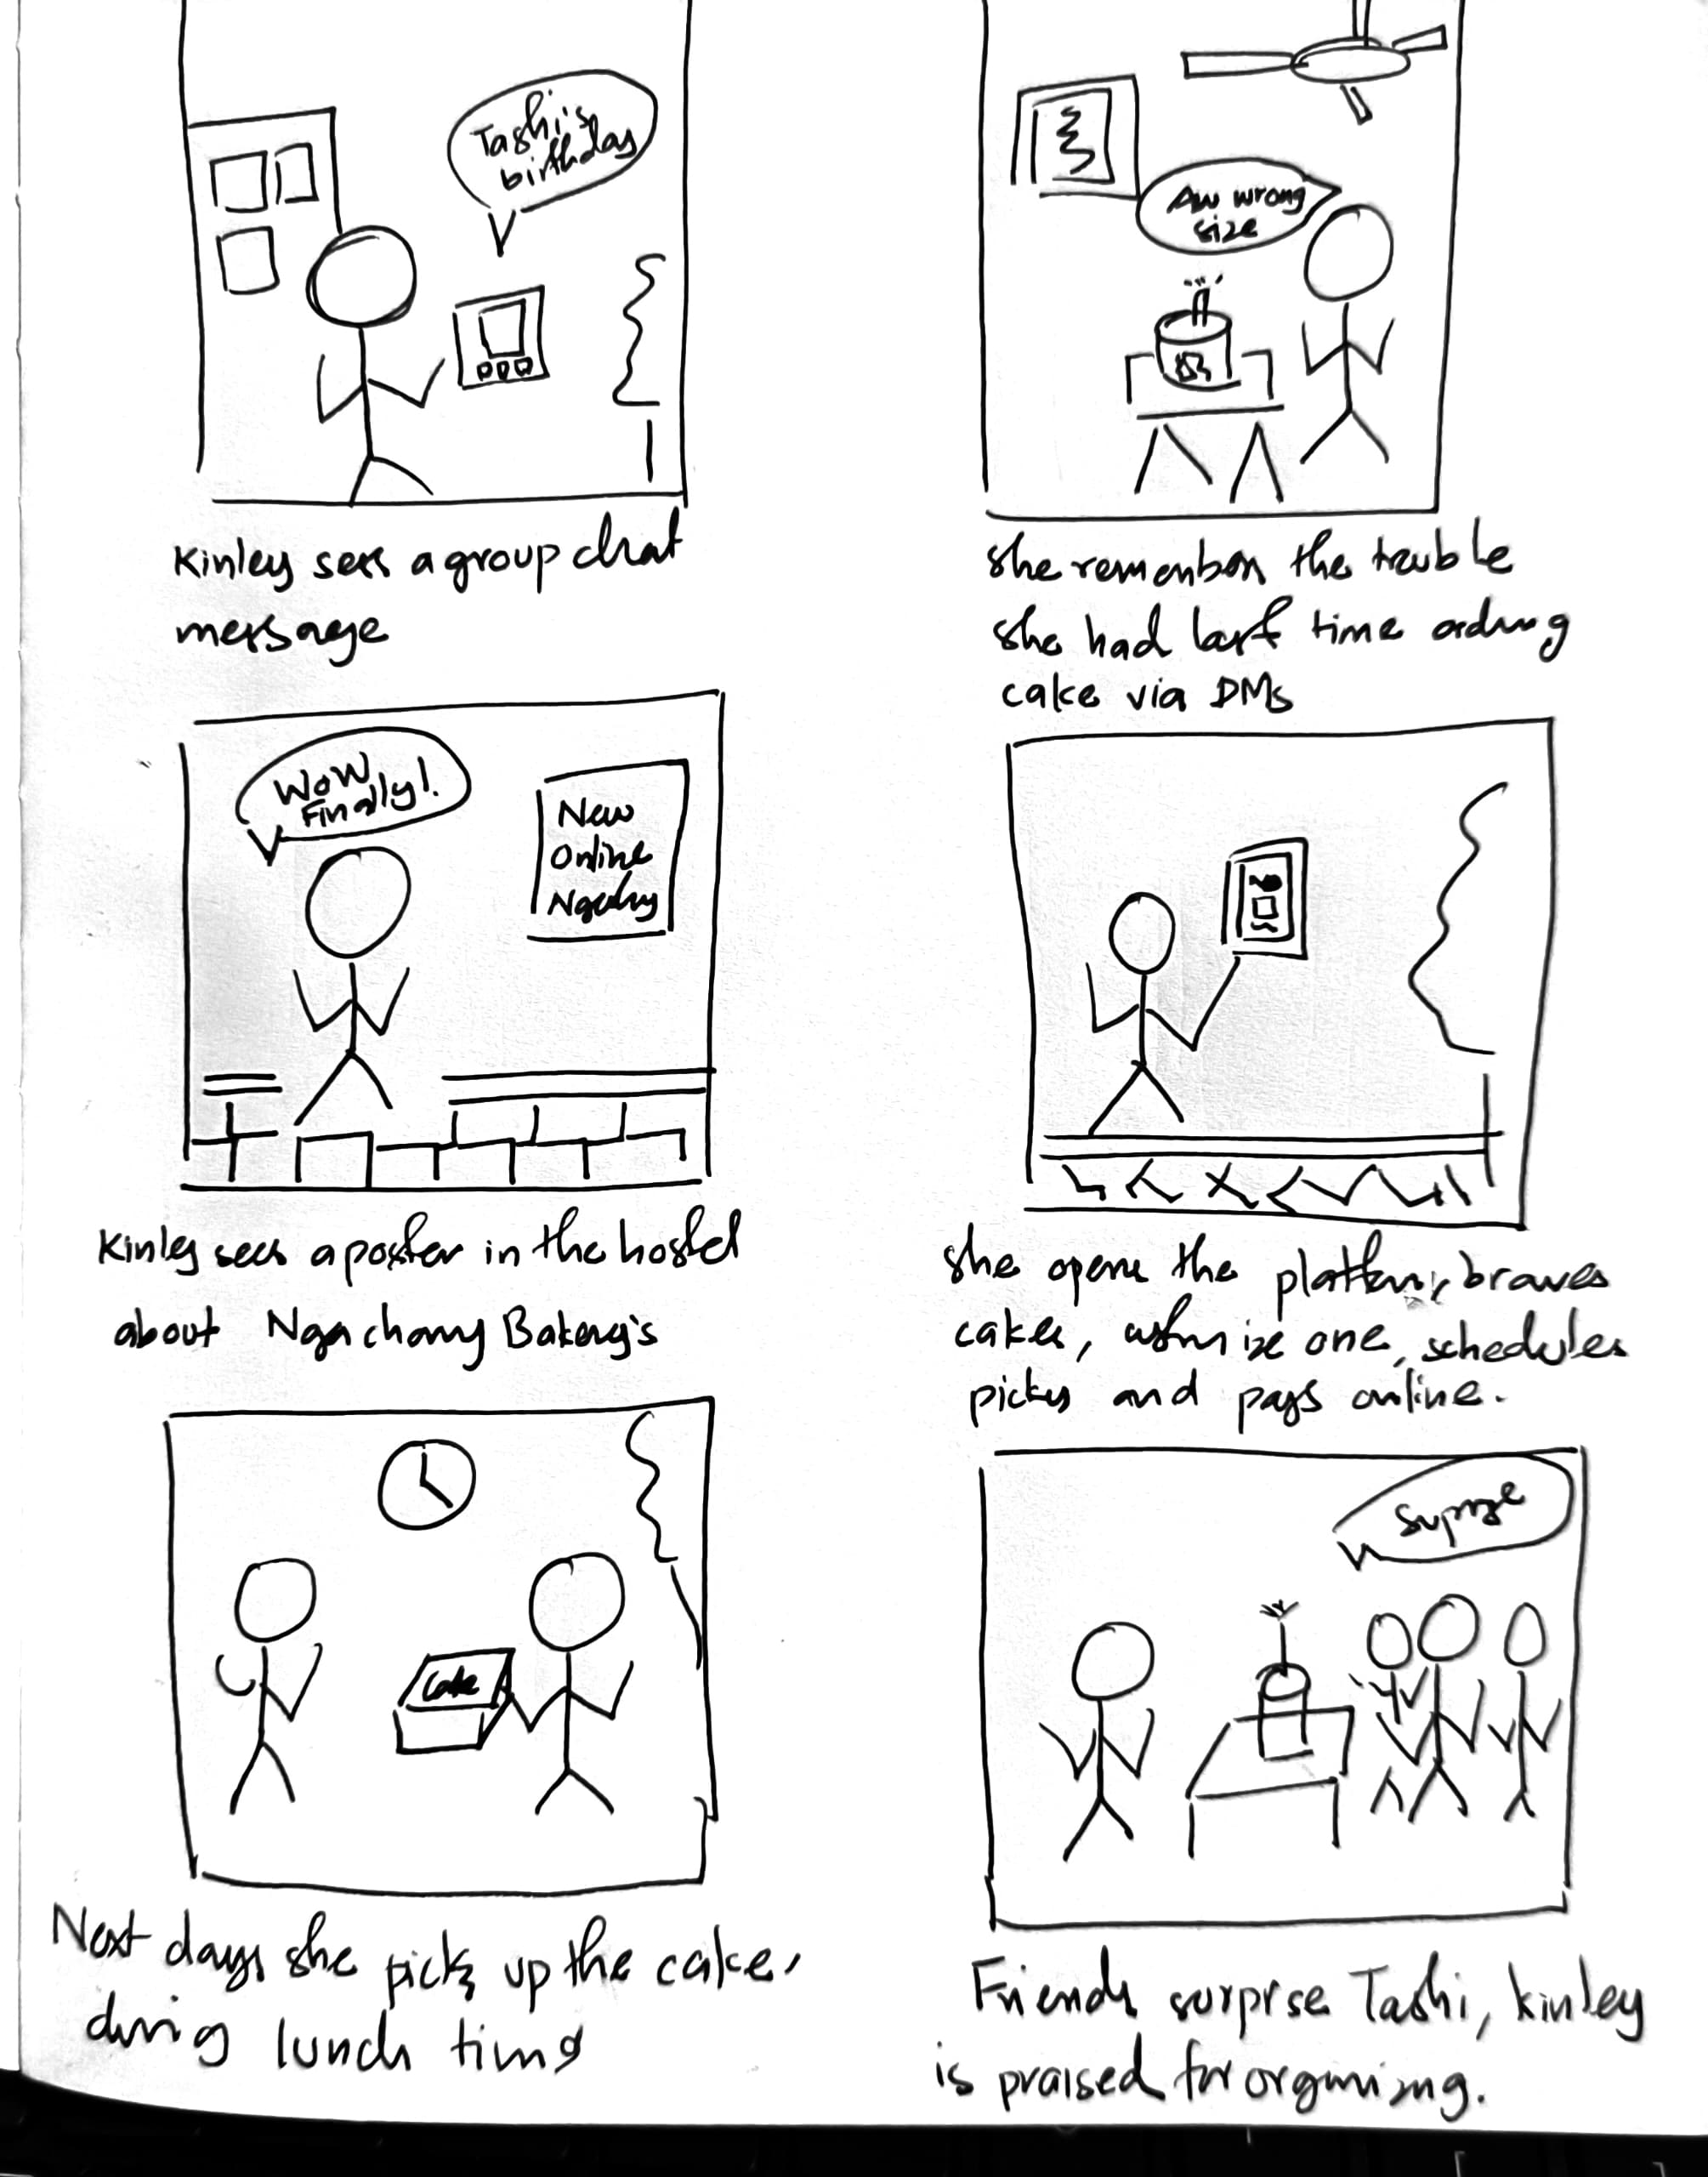 Tashi's
birthday
Kinley sees a group chat
message
Aw wrong
size
she remembers the trouble
she had last time
cake via DMs
WoW
Finally!
New
Online
Kinley sees a poster in the hostel
about Ngachang Bakery's
she opens the
cakes, one, schedules
and pays online.
Cake
Next days she picks up the cake,
during lunch time
Friends surprse Tashi, Kinley
is praised for organizing.